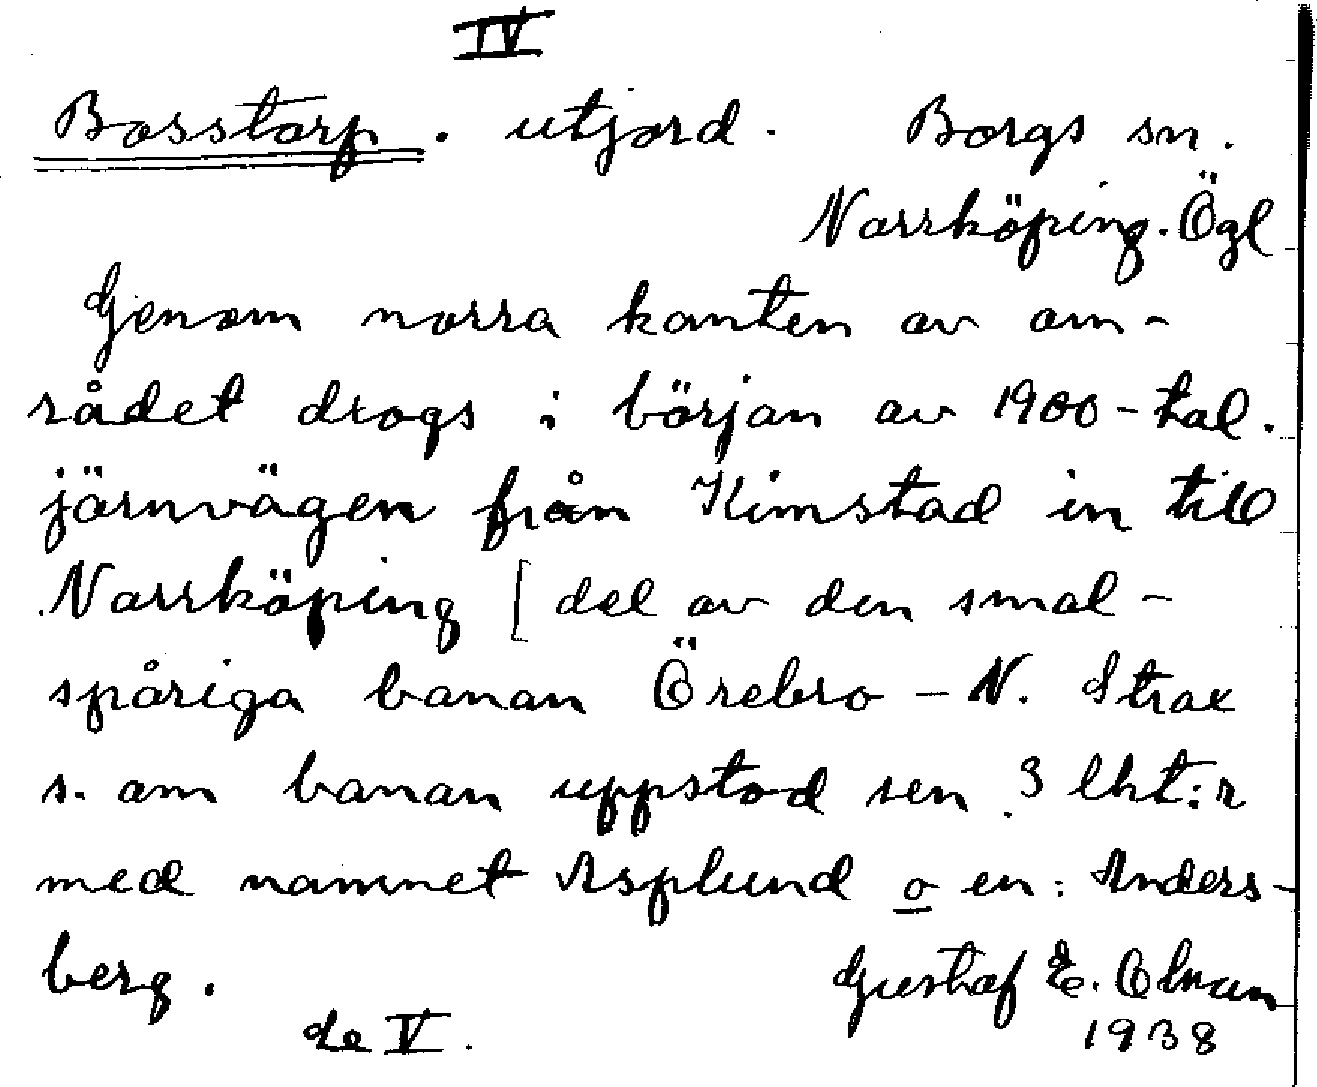 IV
Bosstorp. utjord. Borgs sn.
Norrköping. Ögl
Genom norra kanten av om-
rådet drogs i början av 1900-tal.
järnvägen från Kimstad in till
Norrköping [ del av den smal-
spåriga banan Örebro - N. Strax
s. om banan uppstod sen 3 lht:r
med namnet Asplund o en: Anders-
berg.
Gustaf E.
1938
de V.